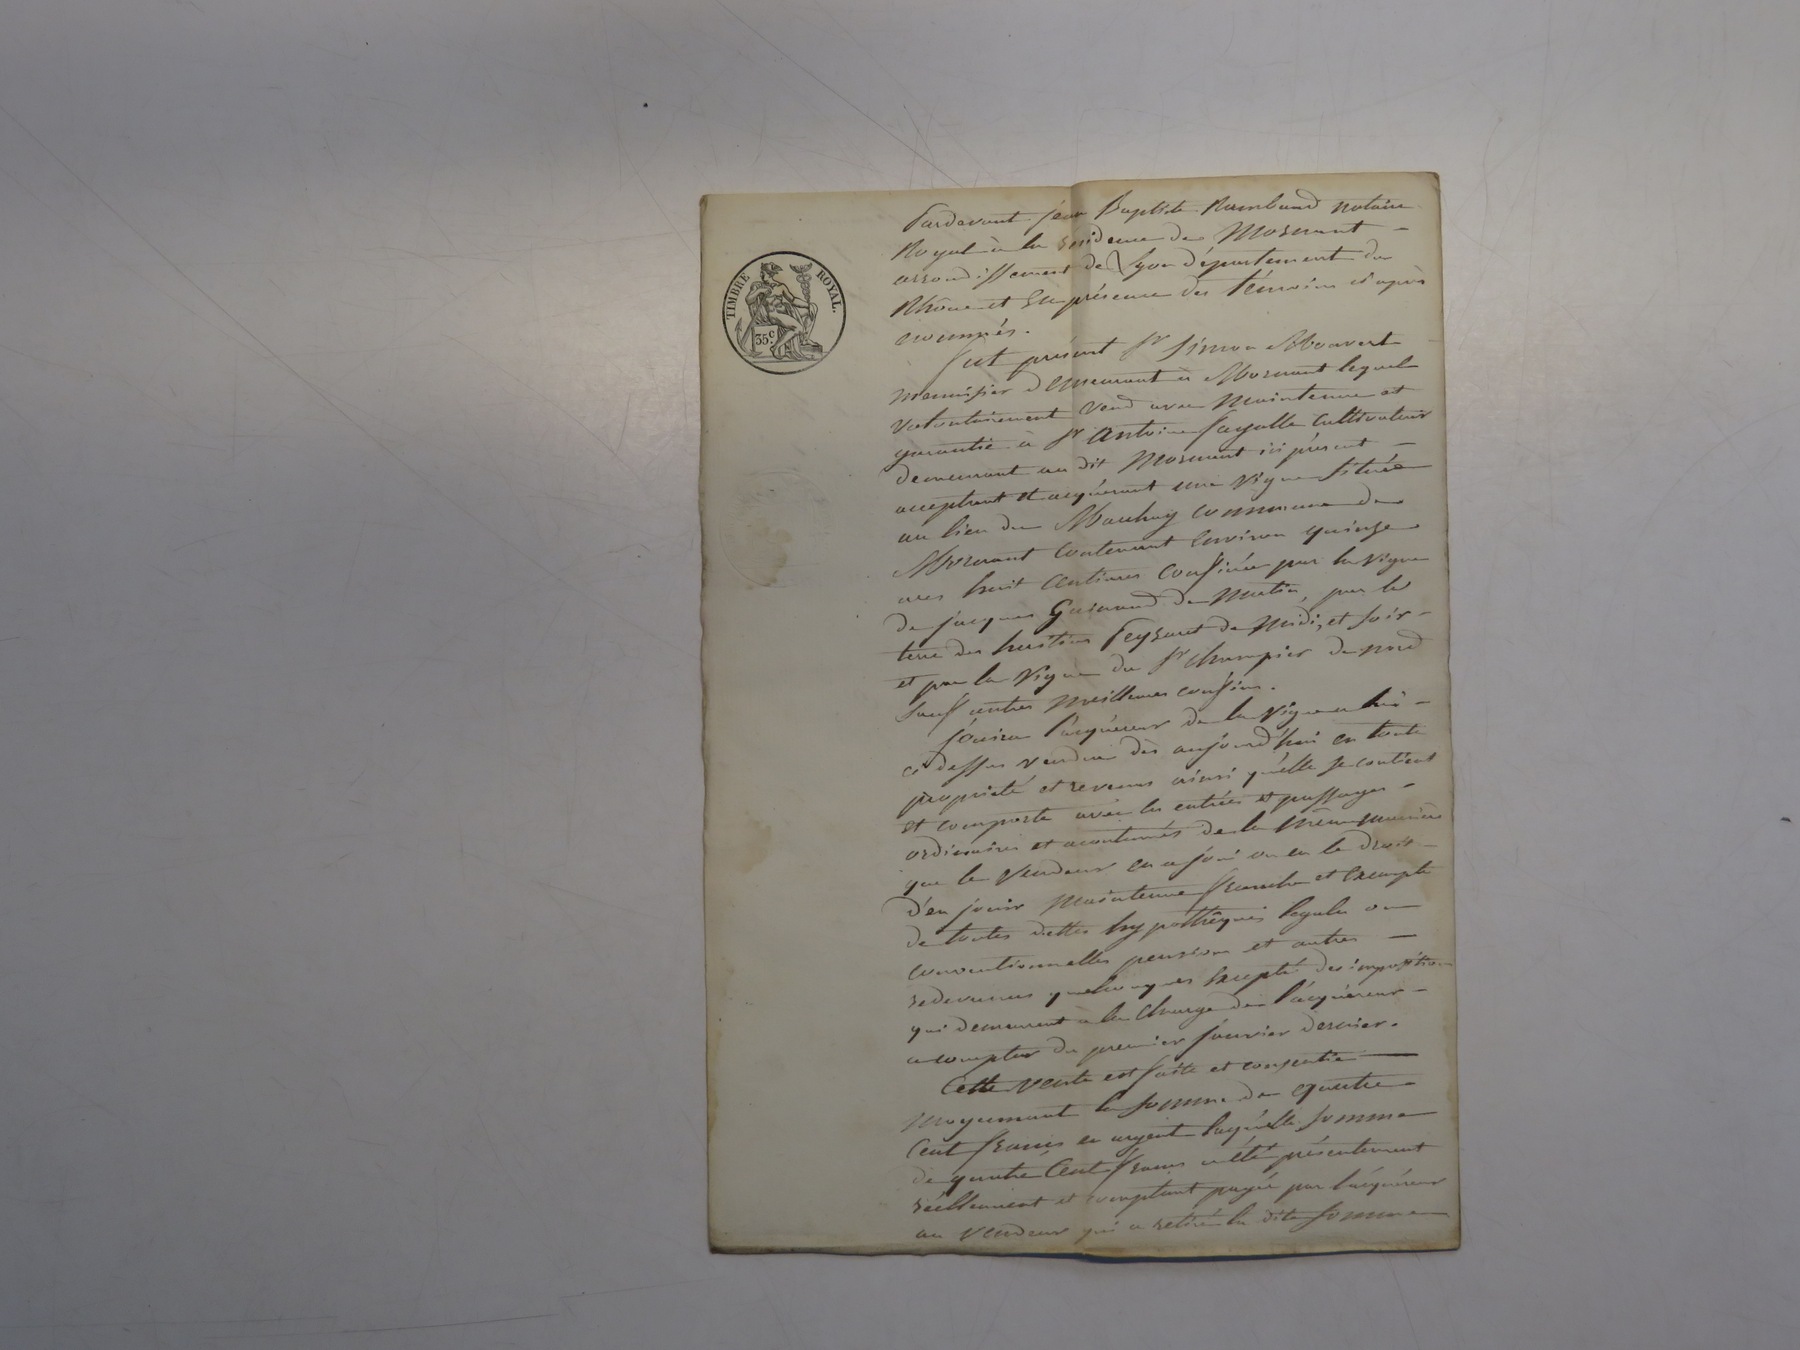 TIMBRE ROYAL.
35c
Pardevant jean Baptiste Rambaud notaire
Royal à la residence de Mornant
arrondissement de Lyon département du
Rhône et En présence des témoins ci après
nommés.
fut présent Sr Simon
menuisier demeurant à Mornant lequel
volontairement vend avec Maintenue et
garantie à Sr Antoine fayolle Cultivateur
demeurant au dit Mornant ici présent
acceptant et acquérant une vigne située
au lieu du commune de
Mornant contenant Environ quinze
ares huit centiares Confinée par la vigne
de jacques de Matin, par la
terre des héritiers de Midi, et soir
et par la vigne du Sr champier de nord
sauf autres meilleures confins.
jouira l'acquéreur de la vigne a lui
ci dessus vendue dès aujourd'hui en toute
propriété et revenus ainsi qu'elle se contient
et comporte avec les entrées et passages
ordinaires et acoutumés de la même manière
que le vendeur en a joui ou eu le droit
d'en jouir Maintenue franche et Exempte
de toutes dettes hypothèques légales ou
conventionnelles pension et autres
redevances quelconques Excepté des impositions
qui demeurent à la Charge de l'acquéreur
a compter du premier janvier dernier.
Cette vente est faite et consentie
Moyennant la somme de quatre
Cent francs en argent laquelle somme
de quatre Cent francs a été présentement
réellement et comptant payée par l'acquéreur
au vendeur qui a retiré la dite somme